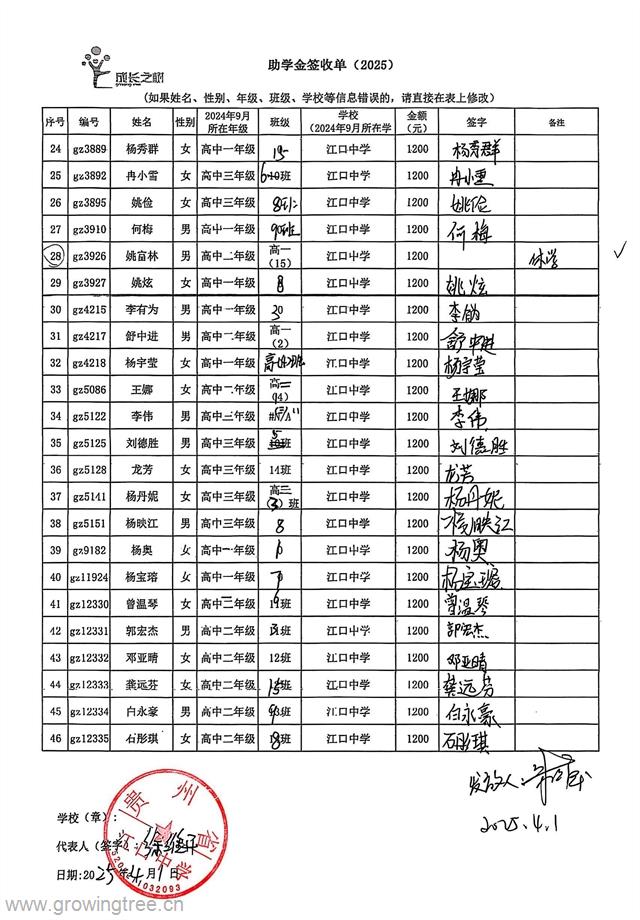 成长之树
助学金签收单（2025）
（如果姓名、性别、年级、班级、学校等信息错误的，请直接在表上修改）
序号 编号 姓名 性别 2024年9月所在年级 班级 学校（2024年9月所在学 金额（元） 签字 备注
24 gz3889 杨秀群 女 高中一年级 15 江口中学 1200 杨秀群
25 gz3892 冉小雪 女 高中三年级 班 江口中学 1200 冉小雪
26 gz3895 姚俭 女 高中二年级 8班 江口中学 1200 姚俭
27 gz3910 何梅 男 高中一年级 江口中学 1200 何梅
28 gz3926 姚富林 男 高中二年级 高一（15） 江口中学 1200 休学 ✓
29 gz3927 姚炫 女 高中一年级 8 江口中学 1200 姚炫
30 gz4215 李有为 男 高中一年级 江口中学 1200
31 gz4217 舒中进 男 高中二年级 高一（2） 江口中学 1200 舒中进
32 gz4218 杨宇莹 女 高中一年级 江口中学 1200 杨宇莹
33 gz5086 王娜 女 高中二年级 江口中学 1200 王娜
34 gz5122 李伟 男 高中三年级 江口中学 1200 李伟
35 gz5125 刘德胜 男 高中三年级 班 江口中学 1200 刘德胜
36 gz5128 龙芳 女 高中一年级 14班 江口中学 1200 龙芳
37 gz5141 杨丹妮 女 高中三年级 高三（3）班 江口中学 1200 杨丹妮
38 gz5151 杨映江 男 高中三年级 8 江口中学 1200 杨映江
39 gz9182 杨奥 女 高中一年级 江口中学 1200 杨奥
40 gz11924 杨宝瑢 女 高中一年级 江口中学 1200 杨宝瑢
41 gz12330 曾温琴 女 高中二年级 班 江口中学 1200 曾温琴
42 gz12331 郭宏杰 男 高中二年级 班 江口中学 1200 郭宏杰
43 gz12332 邓亚晴 女 高中二年级 12班 江口中学 1200 邓亚晴
44 gz12333 龚远芬 女 高中二年级 班 江口中学 1200 龚远芬
45 gz12334 白永豪 男 高中二年级 班 江口中学 1200 白永豪
46 gz12335 石彤琪 女 高中二年级 班 江口中学 1200 石彤琪
发放人：
2025.4.1
学校（章）：
贵州省江口中学
代表人（签字）：
5206211032093
日期:2025年4月1日
www.growingtree.cn